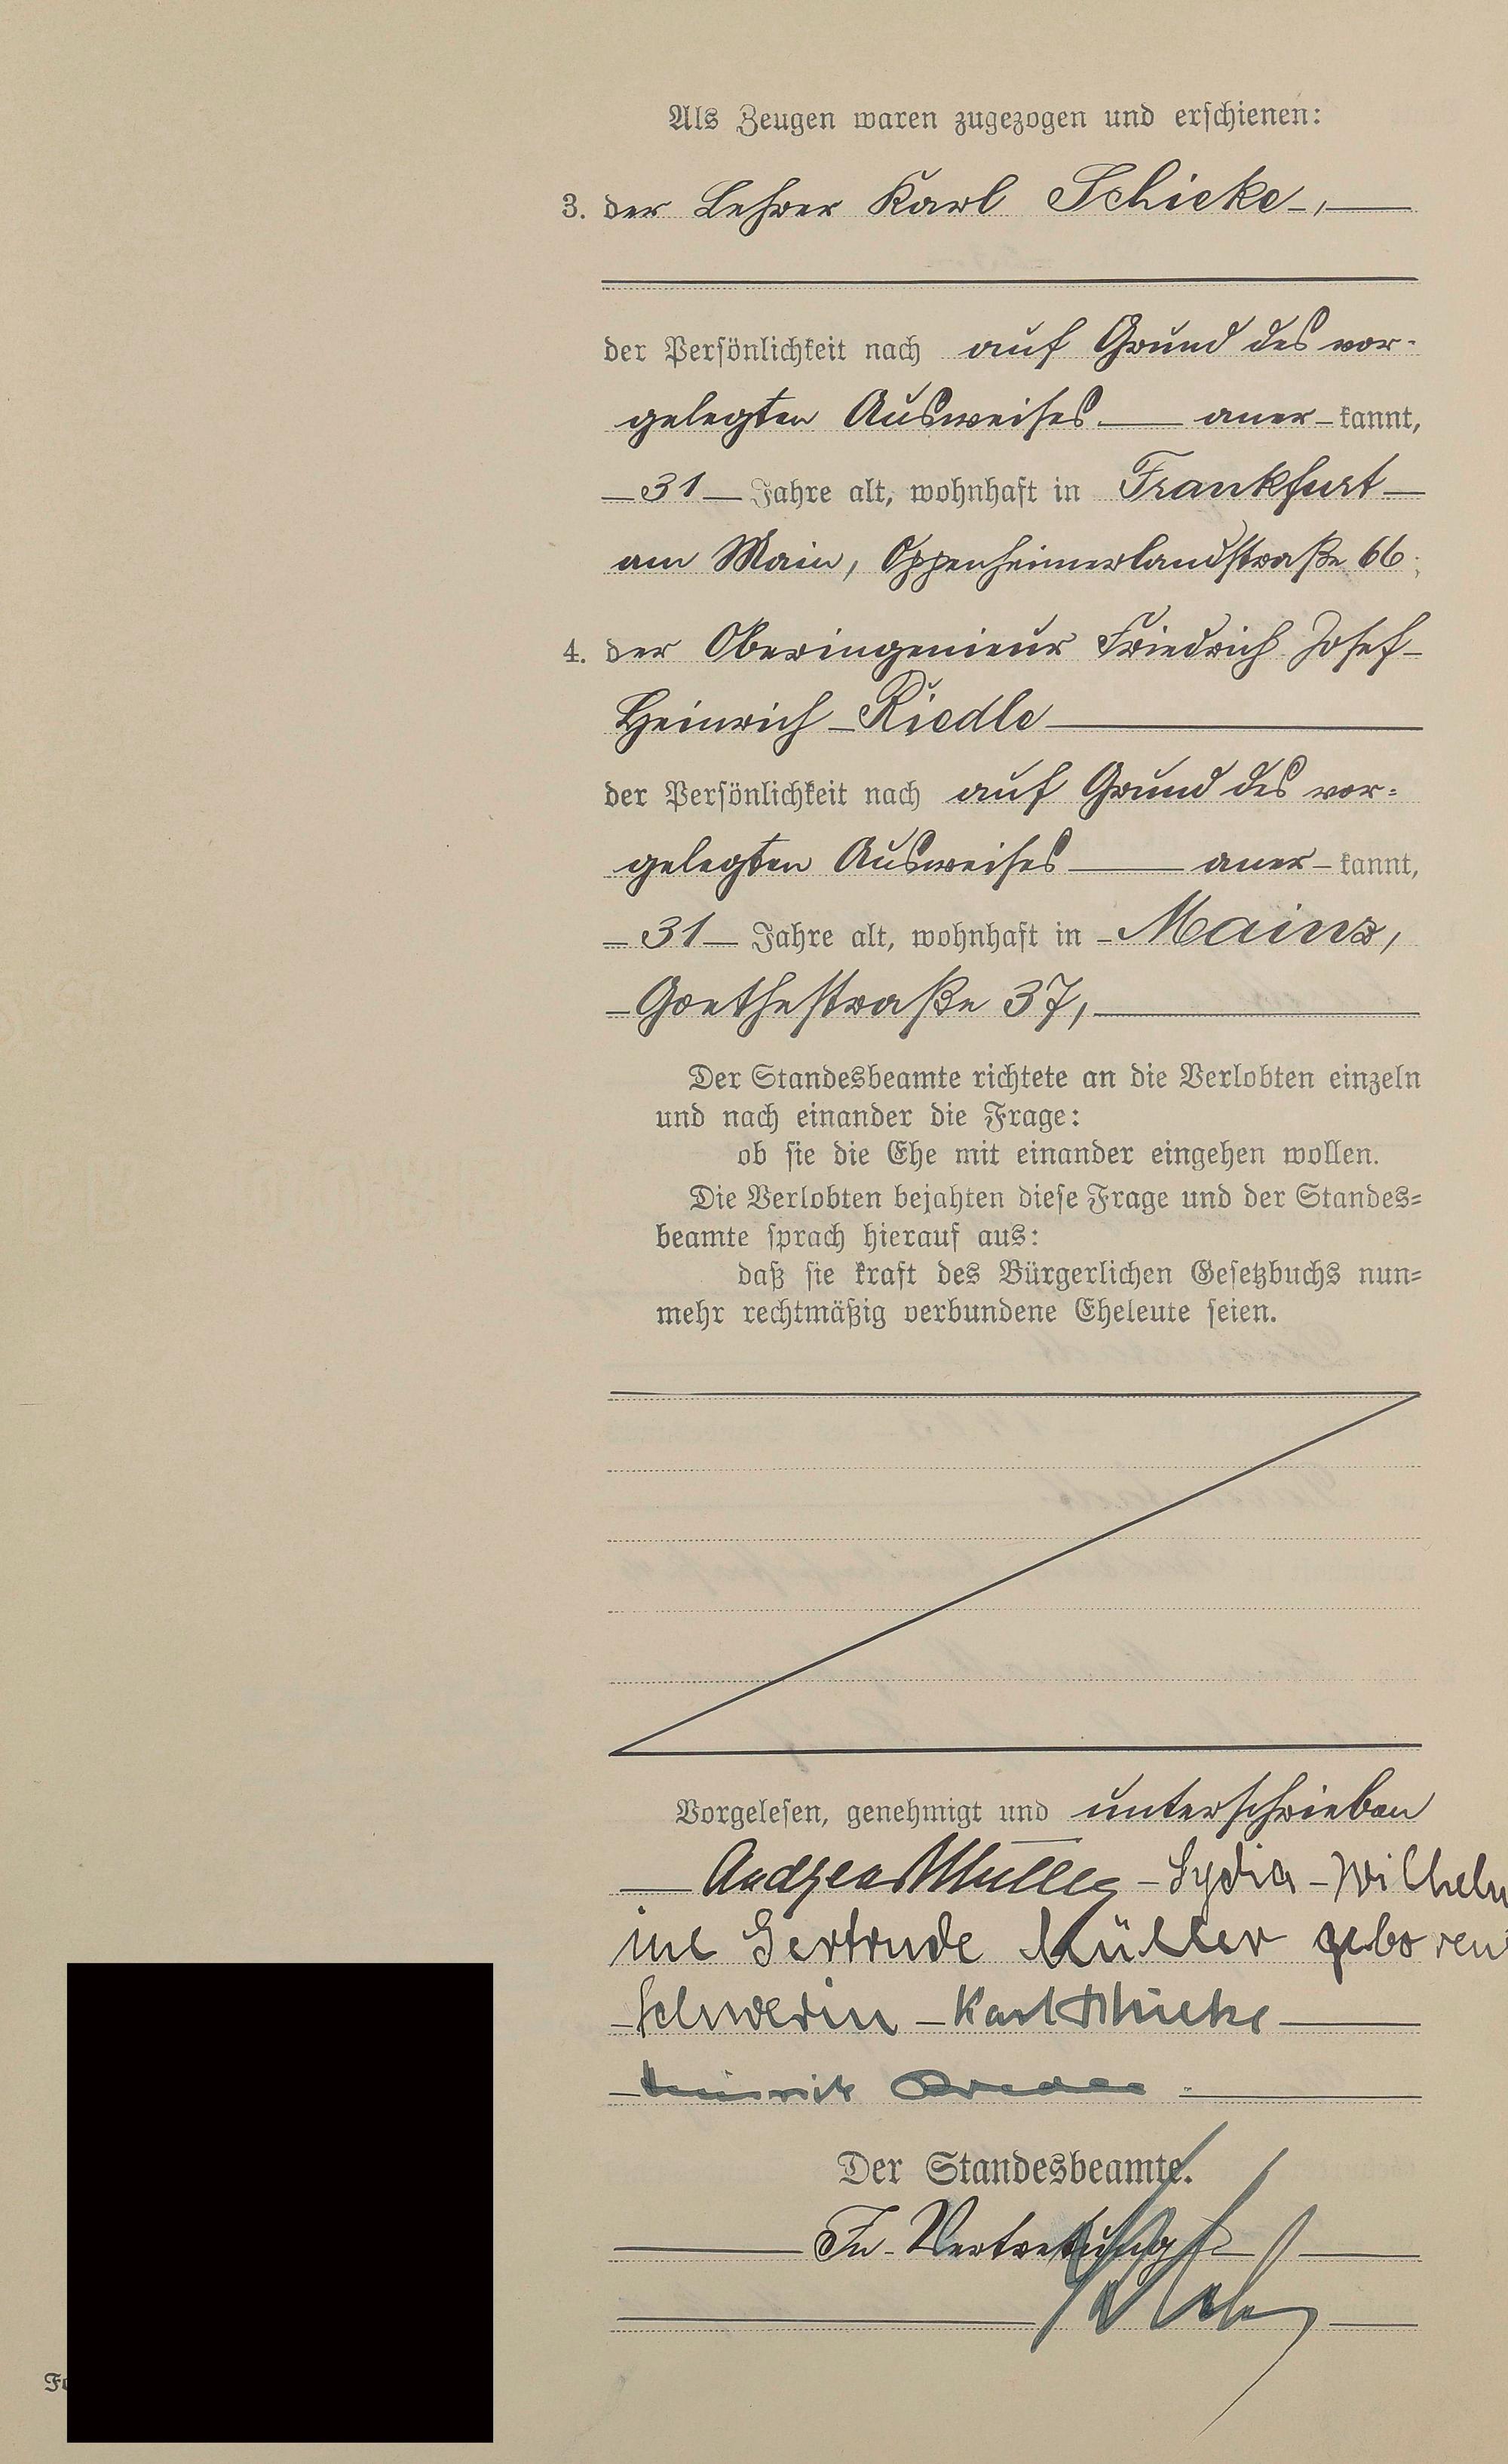 Als Zeugen waren zugezogen und erschienen:
3. der Lehrer Karl Schicke,
der Persönlichkeit nach auf Grund des vor-
gelegten Ausweises aner-kannt,
31 Jahre alt, wohnhaft in Frankfurt
am Main, Oppenheimerlandstraße 66;
4. der Oberingenieur Friedrich Josef
Heinrich Riedle
der Persönlichkeit nach auf Grund des vor-
gelegten Ausweises aner-kannt,
31 Jahre alt, wohnhaft in Mainz,
Goethestraße 37,
Der Standesbeamte richtete an die Verlobten einzeln
und nach einander die Frage:
ob sie die Ehe mit einander eingehen wollen.
Die Verlobten bejahten diese Frage und der Standes-
beamte sprach hierauf aus:
daß sie kraft des Bürgerlichen Gesetzbuchs nun-
mehr rechtmäßig verbundene Eheleute seien.
Vorgelesen, genehmigt und unterschrieben
Andreas Müller - Lydia - Wilhelm
ine Gertrude Müller geboren
Schwerin - Karl Schicke
Heinrich
Der Standesbeamte.
In Vertretung